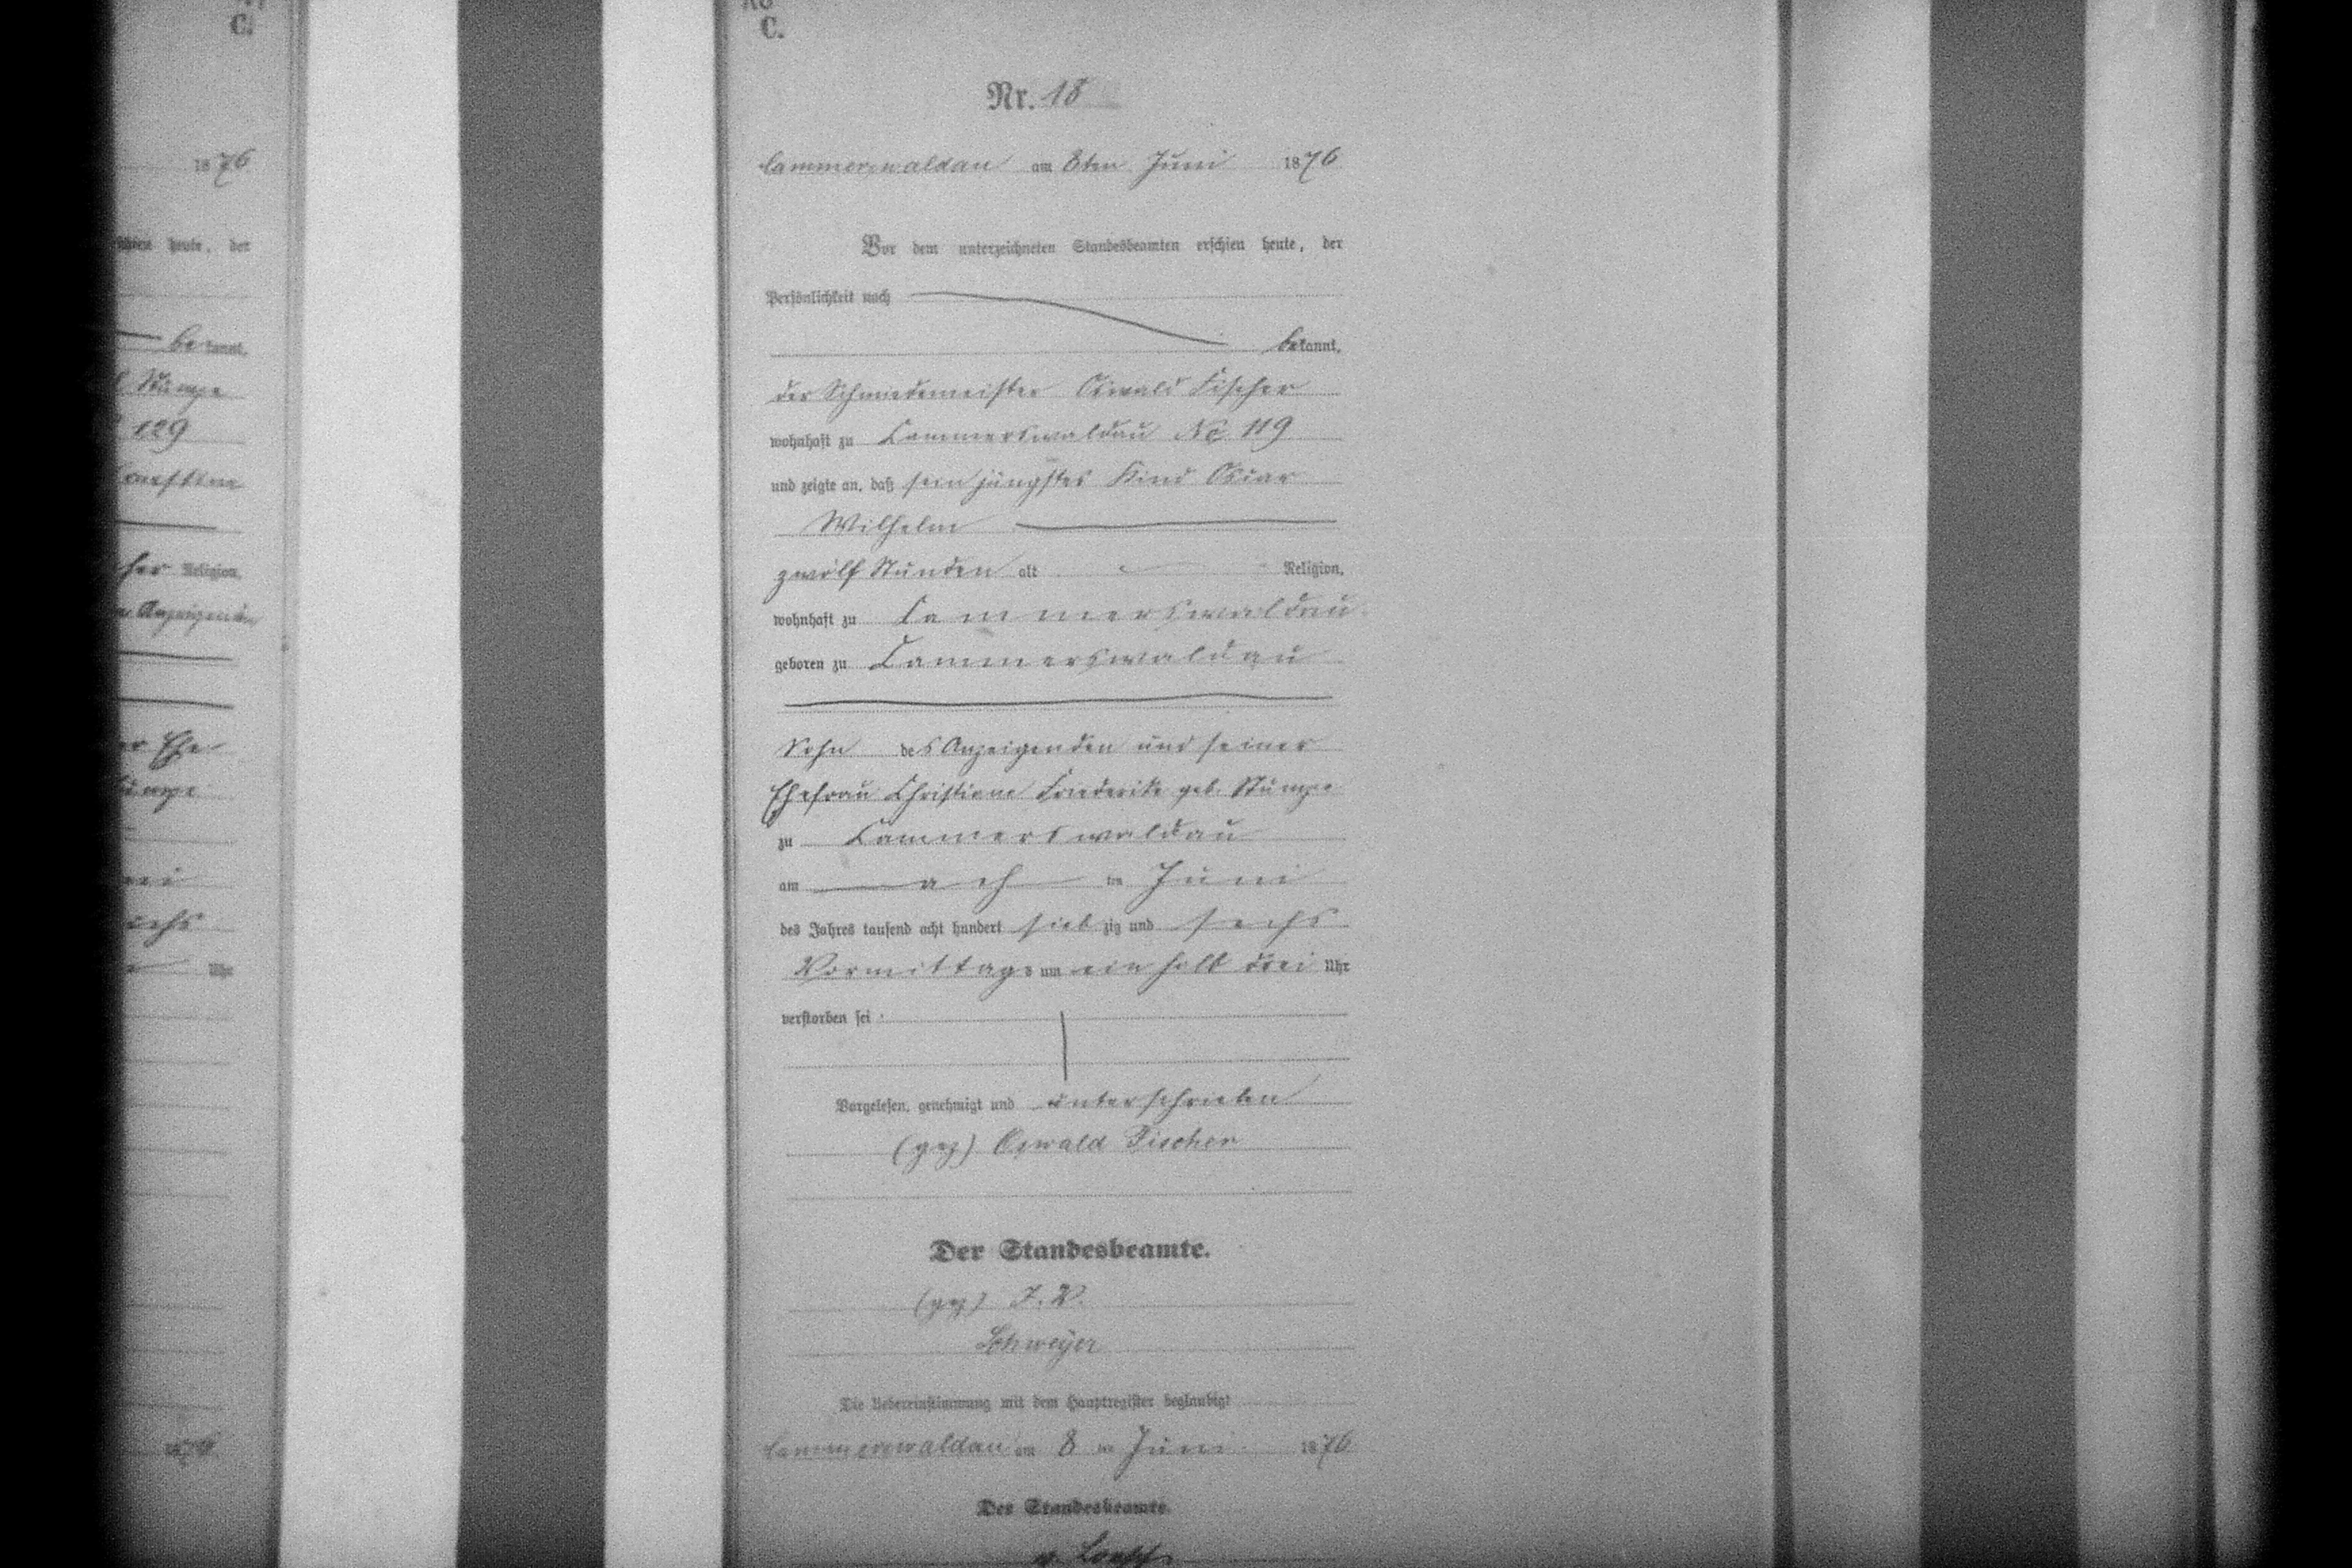 C.
1876
heute, der
bekannt,
Stumpe
129
Religion,
Anzeigenden
Ehe
Stumpe
Uhr
C.
Nr. 18
Cammerswaldau am 8ten Juni 1876
Vor dem unterzeichneten Standesbeamten erschien heute, der
Persönlichkeit nach
bekannt,
der Schmiedemeister Oswald Fischer
wohnhaft zu Cammerswaldau No 119
und zeigte an, daß sein jüngstes Kind Oscar
Wilhelm
zwölf Stunden alt Religion,
wohnhaft zu Cammerswaldau
geboren zu Cammerswaldau
Sohn des Anzeigenden und seiner
Ehefrau Christiane Friederike geb. Stumpe
zu Cammerswaldau
am ach ten Juni
des Jahres tausend acht hundert sieb zig und sechs
Vormittags um ein halb drei Uhr
verstorben sei
Vorgelesen, genehmigt und unterschrieben
(gez) Oswald Fischer
Der Standesbeamte.
(gez) I. V.
Schweyer
Die Uebereinstimmung mit dem Hauptregister beglaubigt
Cammerswaldau am 8 ten Juni 1876
Der Standesbeamte.